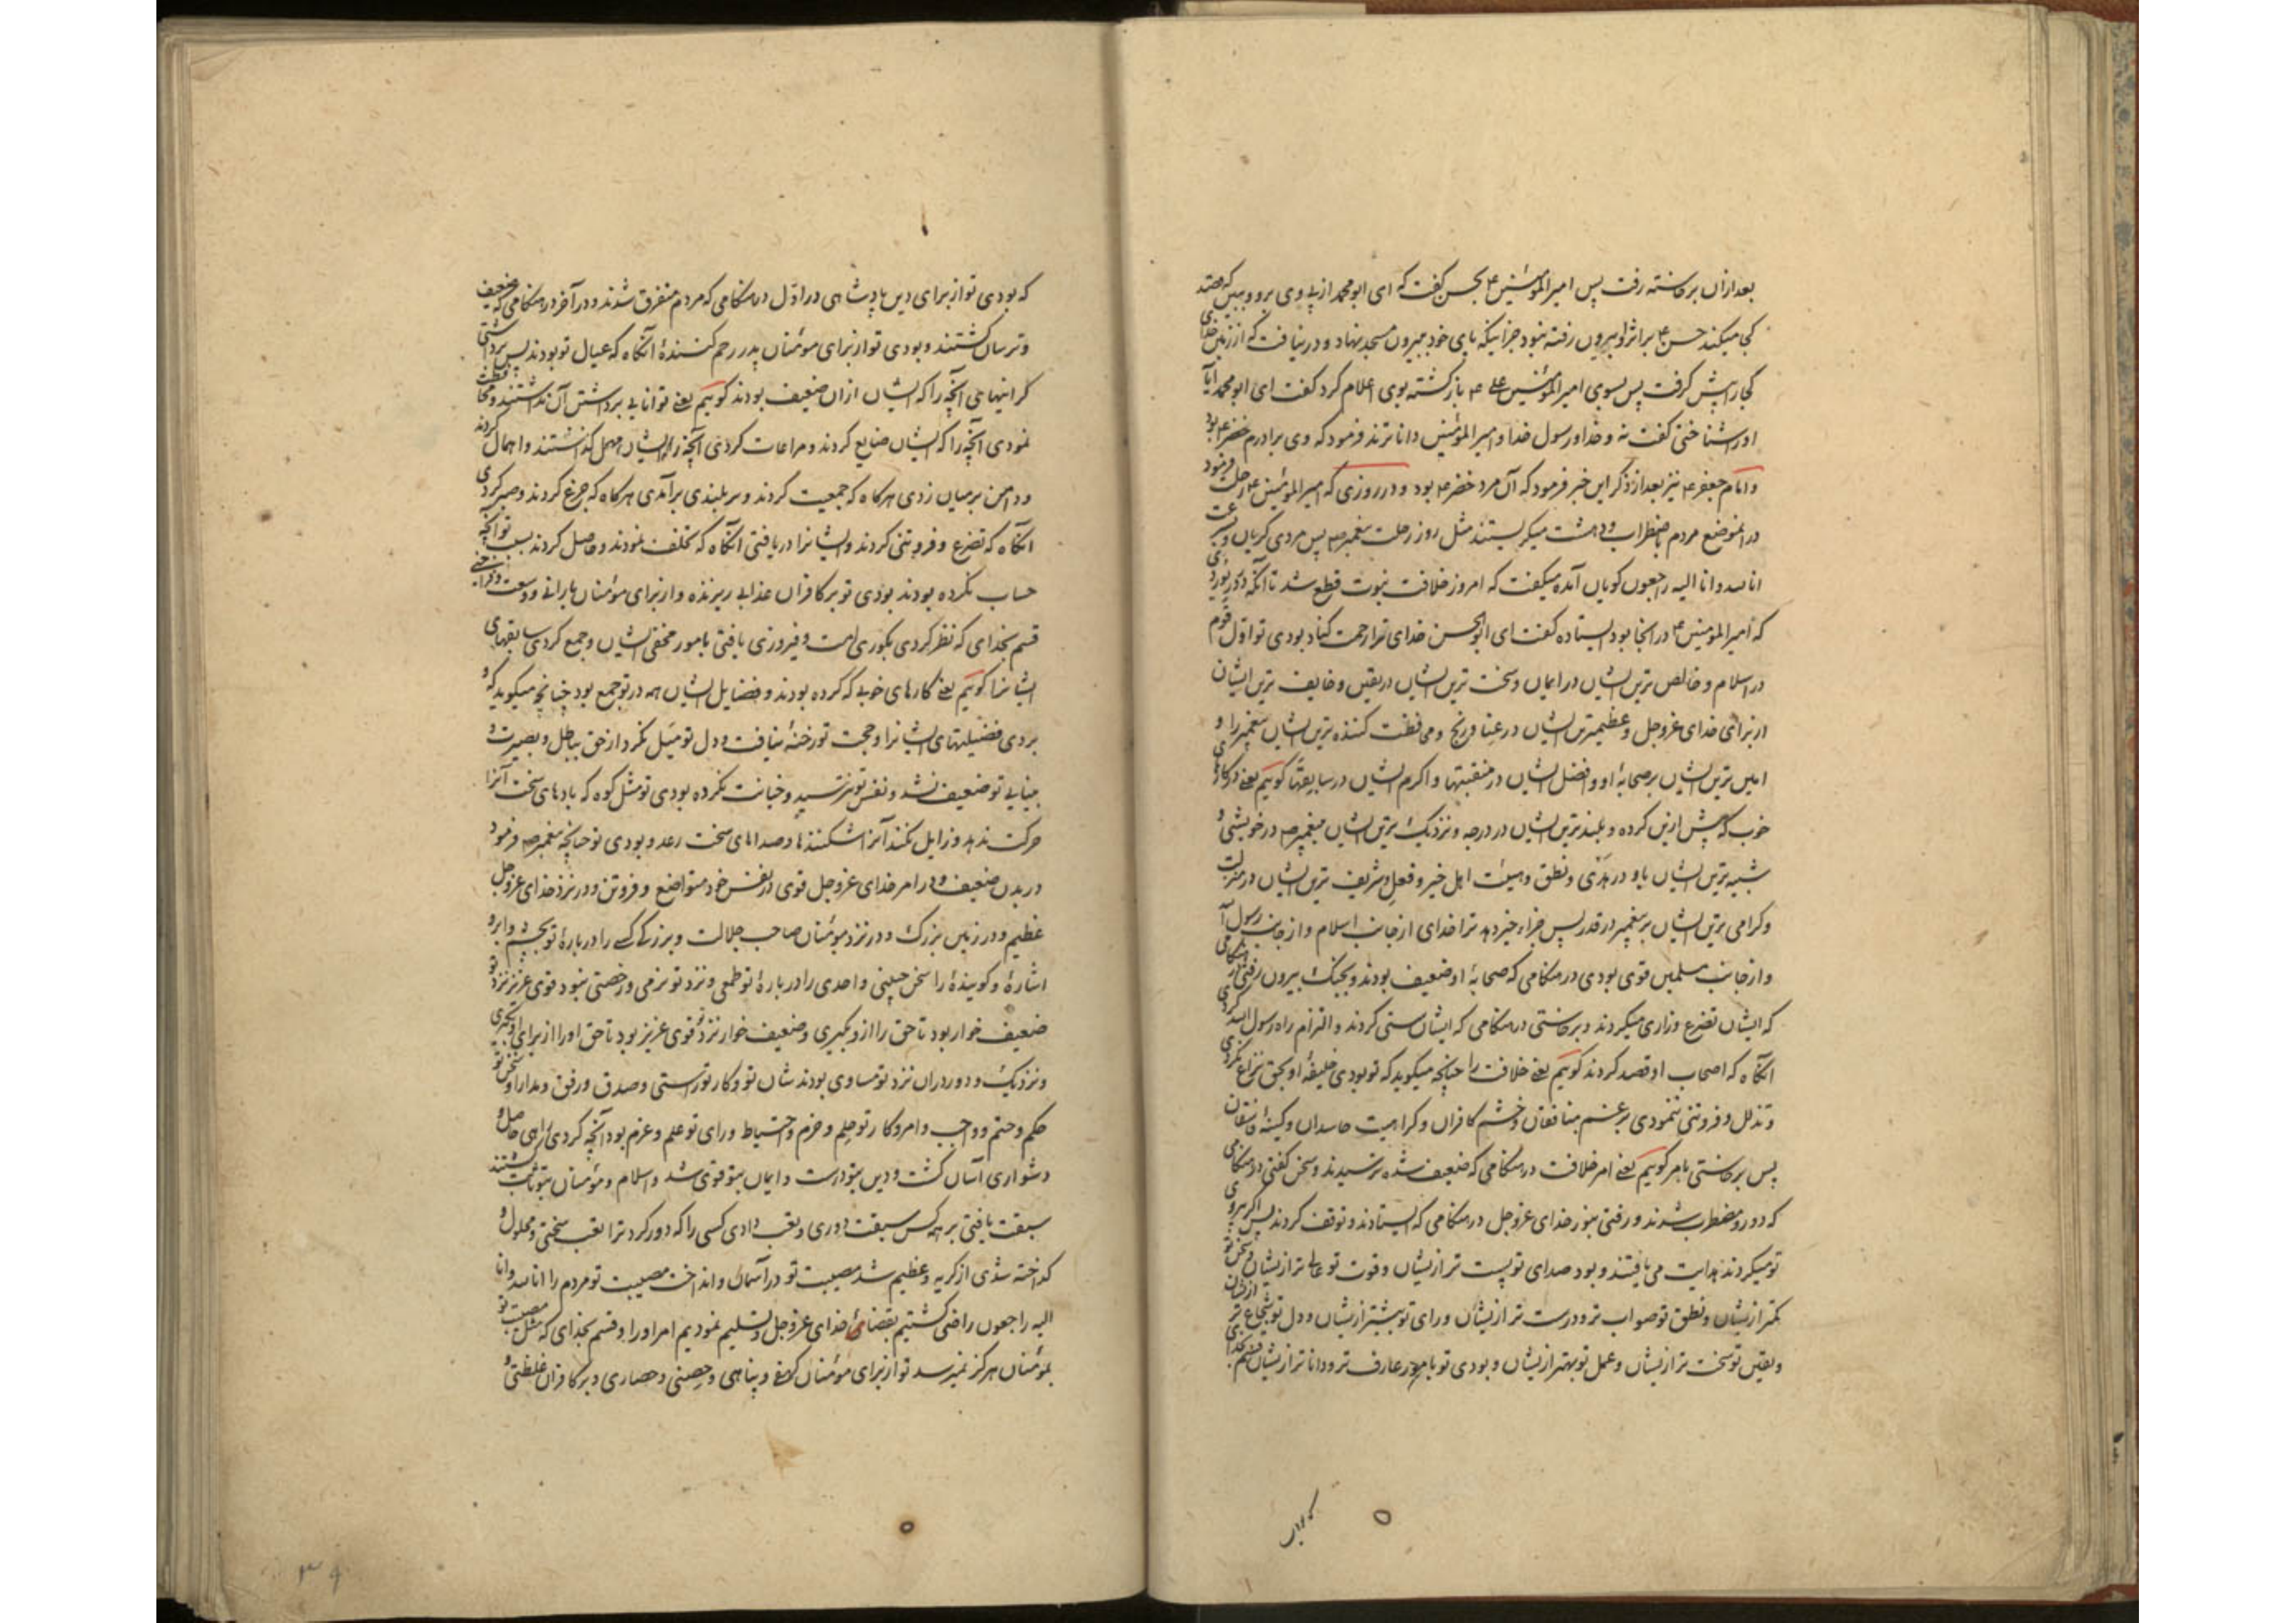 بعد ازان برخاسته رفت پس امیرالمؤمنین ع بحسن گفت که ای ابو محمد از پی وی برو و ببین که قصد
کجا میکند حسن ع بر اثر او بیرون رفته نبود جز اینکه پای خود بیرون مسجد نهاد و در نیافت که از زمین خدای
کجا را پیش گرفت پس بسوی امیرالمؤمنین علی ع بازگشته بوی اعلام کرد گفت ای ابو محمد آیا
اورا شناختی گفت نه و خدا و رسول خدا و امیرالمؤمنین داناترند فرمود که وی برادرم خضر ع بود
و امام جعفر ع نیز بعد از ذکر این خبر فرمود که آن مرد خضر ع بود و در روزی که امیرالمؤمنین ع رحلت فرمود
در انموضع مردم باضطراب و دهشت میگریستند مثل روز رحلت پیغمبر ص پس مردی گریان و بسرعت
انا لله و انا الیه راجعون گویان آمده میگفت که امروز خلافت نبوت قطع شد تا آنکه بر در
که امیرالمؤمنین ع در انجا بود ایستاده گفت ای ابوالحسن خدای ترا رحمت کناد بودی تو اول قوم
در اسلام و خالص ترین ایشان در ایمان و سخت ترین ایشان در یقین و خایف ترین ایشان
از برای خدای عزوجل و عظیمترین ایشان در عنا و رنج و محافظت کننده ترین ایشان پیغمبر را و
امین ترین ایشان بر صحابهٔ او و افضل ایشان در منقبتها و اکرم ایشان در سابقتها گوئیم یعنے در کارهای
خوب که پیش ازین کرده و بلندترین ایشان در درجه و نزدیک ترین ایشان بپیغمبر ص در خویشی و
شبیه ترین ایشان باو در هدی و نطق و هیئت اهل خیر و فعل و شریف ترین ایشان در منزلت
و گرامی ترین ایشان بر پیغمبر در قدر پس جزاء خیر دهد ترا خدای از جانب اسلام و از جانب رسول آن
و از جانب مسلمین قوی بودی در هنگامی که صحابهٔ او ضعیف بودند و بجنک بیرون رفتی در هنگامی
که ایشان تضرع و زاری میکردند و برخاستی در هنگامی که ایشان سستی کردند و التزام راه رسول الله کردی
آنگاه که اصحاب او قصد کردند گوئیم یعنے خلافت را چنانچه میگوید که تو بودی خلیفهٔ او بحق نزاع نکردی
و تذلل و فروتنی ننمودی برغم منافقان و خشم کافران و کراهیت حاسدان و کینهٔ فاسقان
پس برخاستی بامر گوئیم یعنے امر خلافت در هنگامی که ضعیف شده ترسیدند و سخن گفتی در هنگامی
که دور و مضطرب شدند و رفتی بنور خدای عزوجل در هنگامی که ایستادند و توقف کردند پس اگر پیروی
تو میکردند هدایت می یافتند و بود صدای تو پست تر ازیشان و قوت تو عالی تر ازیشان و سخن تو
کمتر ازیشان و نطق تو صواب تر و درست تر ازیشان و رای تو بیشتر ازیشان و دل تو شجاع تر ازیشان
و یقین تو سخت تر ازیشان و عمل تو بهتر ازیشان و بودی تو بامور عارف تر و داناتر ازیشان قسم بخدای
که بودی
که بودی تو از برای دین پادشاهی در اول در هنگامی که مردم متفرق شدند و در آخر در هنگامی که ضعیف
و ترسان گشتند و بودی تو از برای مؤمنان پدر رحم کنندهٔ آنگاه که عیال تو بودند پس برداشتی
گرانیهای آنچه را که ایشان ازان ضعیف بودند گوئیم یعنے توانایی برداشتن آن نداشتند و محافظت
نمودی آنچه را که ایشان ضایع کردند و مراعات کردی آنچه را ایشان مهمل گذاشتند و اهمال کردند
و دامن بر میان زدی هرگاه که جمعیت کردند و بر بلندی برآمدی هرگاه که جزع کردند و صبر کردی
آنگاه که تضرع و فروتنی کردند و ایشانرا دریافتی آنگاه که تخلف نمودند و حاصل کردند بسبب تو آنچه
حساب نکرده بودند بودی تو بر کافران عذابی ریزنده و از برای مؤمنان بارانی و وسعت و فراخی
قسم بخدای که نظر کردی بکوری امت و فیروزی یافتی بامور مخفی ایشان و جمع کردی سابقهای
ایشانرا گوئیم یعنے کارهای خوبی که کرده بودند و فضایل ایشان همه در تو جمع بود چنانچه میگوید که و
بردی فضیلتهای ایشانرا و حجت تو رخنه نیافت و دل تو میل نکرد از حق بباطل و بصیرت و
بینایی تو ضعیف نشد و نفس تو نترسید و خیانت نکرده بودی تو مثل کوه که بادهای سخت آنرا
حرکت ندهد و زایل نکند آنرا شکنندها و صداهای سخت رعد و بودی تو چنانچه پیغمبر ص فرمود
در بدن ضعیف و در امر خدای عزوجل قوی در نفس خود متواضع و فروتن و در نزد خدای عزوجل
عظیم و در زمین بزرک و در نزد مؤمنان صاحب جلالت و بزرگی کسے را در بارهٔ تو بچشم و ابرو
اشارهٔ و گویندهٔ را سخن چینی و احدی را در بارهٔ تو طمعی و نزد تو نرمی و رخصتی نبود قوی عزیز نزد تو
ضعیف خوار بود تا حق را ازو بگیری و ضعیف خوار نزد تو قوی عزیز بود تا حق اورا از برای او بگیری
و نزدیک و دور دران نزد تو مساوی بودند شان تو و کار تو راستی و صدق و رفق و مدارا و سخن تو
حکم و حتم و واجب و امر و کار تو حلم و حزم و احتیاط و رای تو علم و عزم بود آنچه کردی راهی حاصل و
دشواری آسان گشت و دین بتو راست و ایمان بتو قوی شد و اسلام و مؤمنان بتو ثابت گشتند
سبقت یافتی بر همه کس سبقت دوری و تعب دادی کسی را که دور کرد ترا تعب سختی و محلول و
گداخته شدی از گریه و عظیم شد مصیبت تو در آسمان و انداخت مصیبت تو مردم را انا لله و انا
الیه راجعون راضی گشتیم بقضای خدای عزوجل و تسلیم نمودیم امر اورا و قسم بخدای که مثل مصیبت تو
بمؤمنان هرگز نمیرسد تو از برای مؤمنان کهفے و پناهی و حصنی و حصاری و بر کافران غلظتی و
۳۹